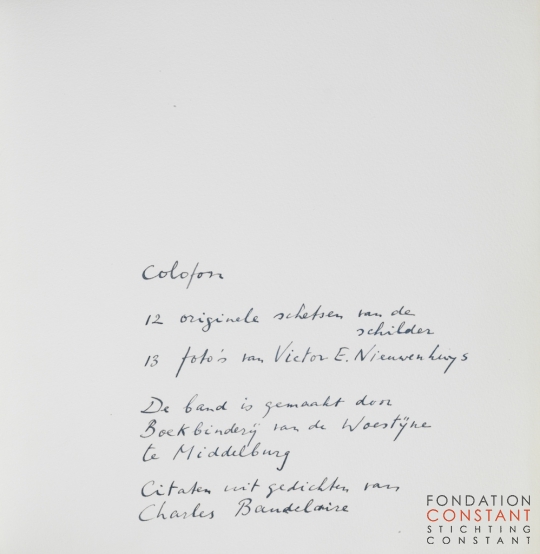 Colofon
12 originele schetsen van de
schilder
13 foto's van Victor E. Nieuwenhuys
De band is gemaakt door
Boekbinderij van de Woestijne
te Middelburg
Citaten uit gedichten van
Charles Baudelaire
FONDATION
CONSTANT
STICHTING
CONSTANT